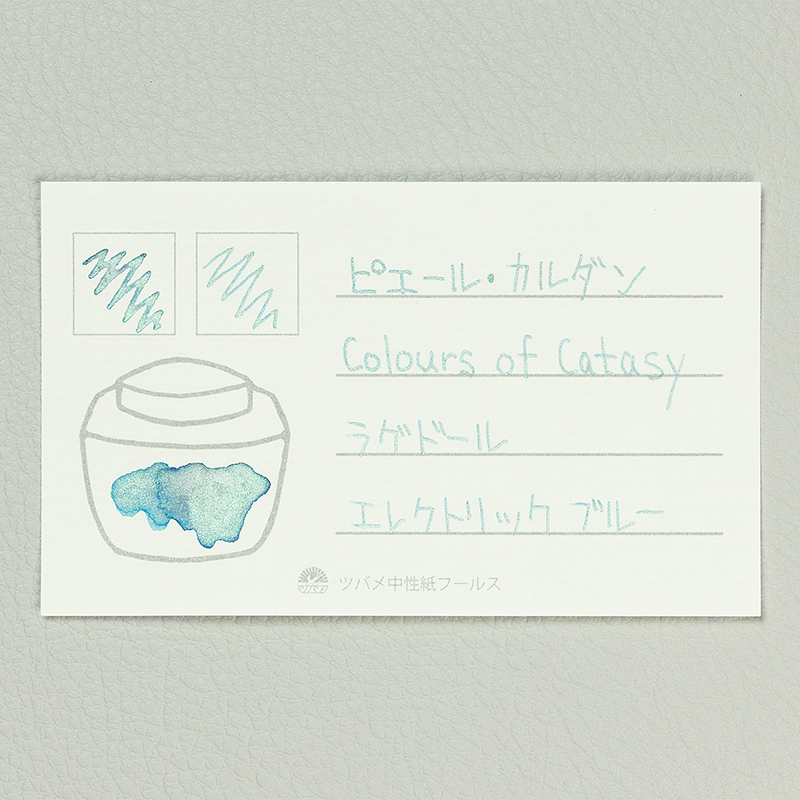 ピエール・カルダン
Colours of Catasy
ラグドール
エレクトリック ブルー
ツバメ中性紙フールス